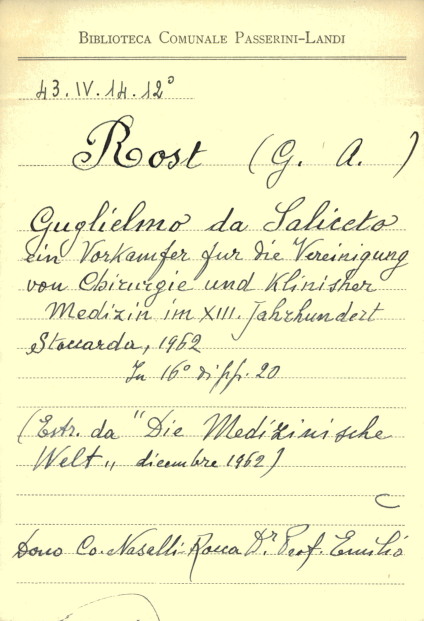 BIBLIOTECA COMUNALE PASSERINI-LANDI
43. IV. 14. 12°
Rost (G. A.)
Guglielmo da Saliceto
ein Vorkamfer fur die Vereinigung
von Chirurgie und Klinisher
Medizin im XIII. Jahrhundert
Stoccarda, 1962
In 16° di pp. 20
(Estr. da "Die Medizinische
Welt„ dicembre 1962)
C
Dono Co. Naselli Rocca Dr Prof. Emilio